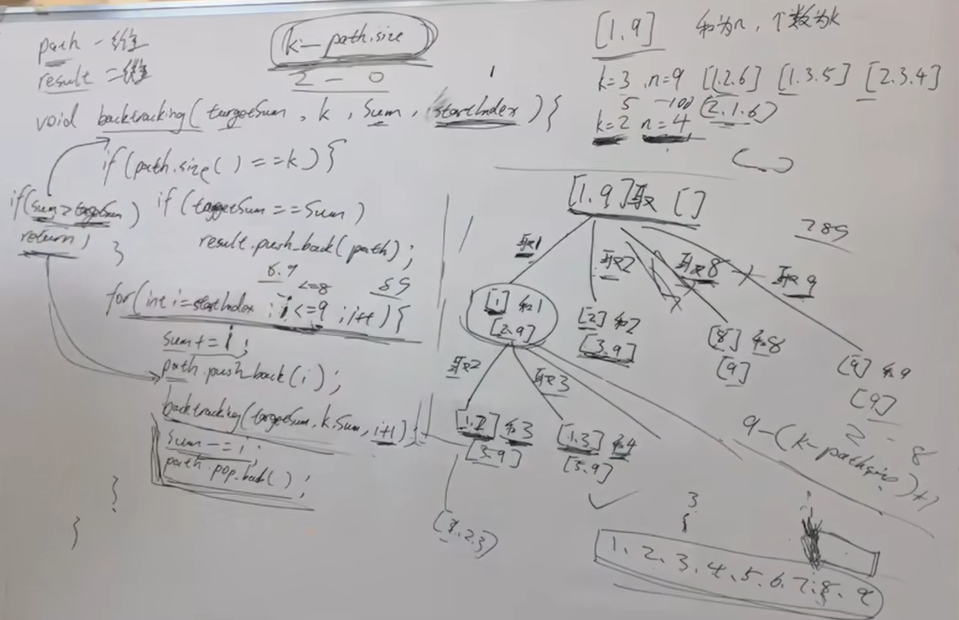 path 一维
result 二维
k-path.size
2 - 0
1
void backtracking(targetSum, k, Sum, startIndex){
if(path.size()==k){
if(sum>targetSum)
return;
if(targetSum==Sum)
result.push_back(path);
}
<=8
89
for(int i=startIndex; i<=9; i++){
sum+=i;
path.push_back(i);
backtracking(targetSum, k, Sum, i+1);
sum-=i;
path.pop_back();
}
}
[1.9] 和为n, 个数为k
k=3, n=9 [1.2.6] [1.3.5] [2.3.4]
5 -100 (2.1.6)
k=2 n=4
[1.9]取 []
289
取1 取2 取8 取9
[1] 和1
[2.9]
[2] 和2
[3.9]
[8] 和8
[9]
[9] 和9
[9]
取2 取3
[1.2] 和3
[3.9]
[1.3] 和4
[3.9]
[1.2.3]
2 - 8
9-(k-pathsize)+1
3
1.2.3.4.5.6.7.8.9